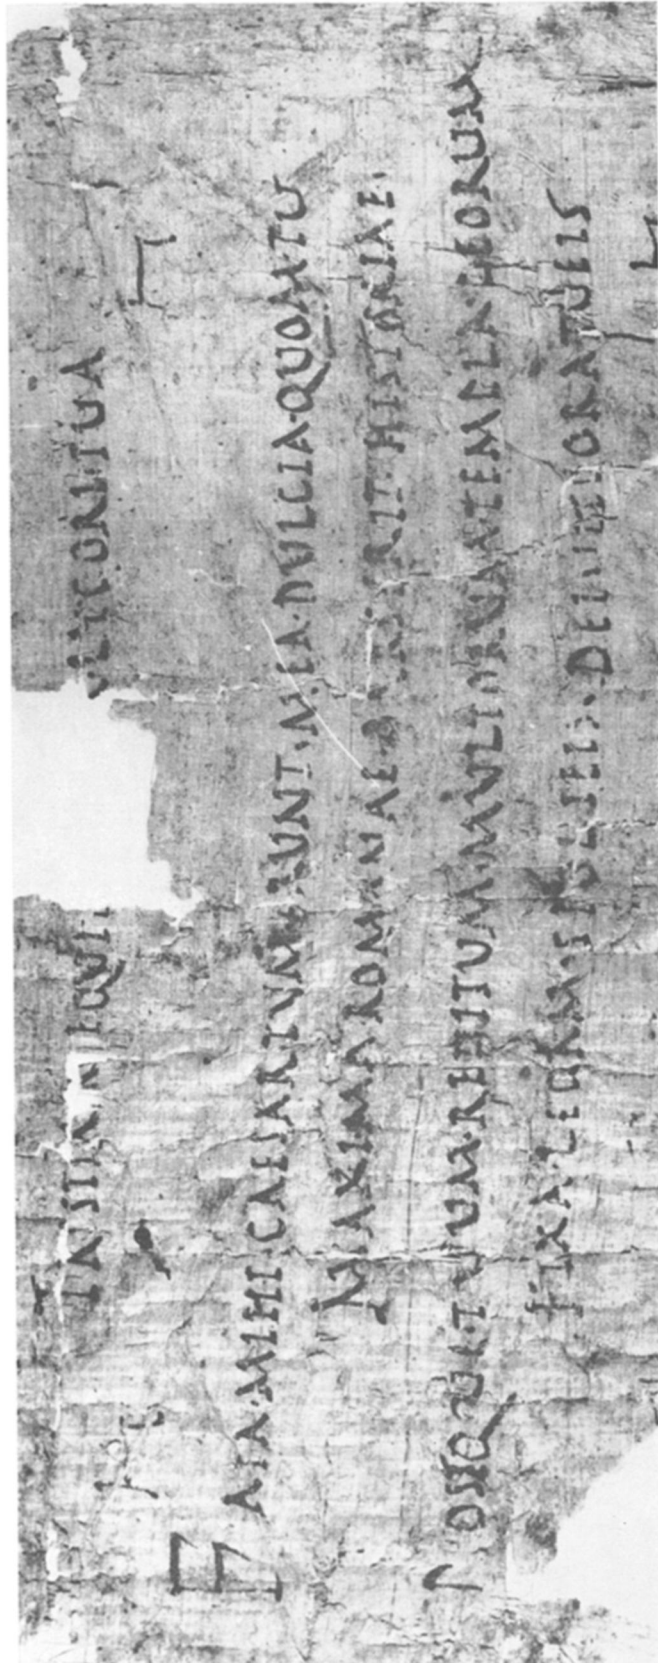 TRISTIA NEQUIT LYCORI·TUA
FATA·MIHI·CAESAR·TUM·ERUNT·MEA·DULCIA·QUOM·TU
MAXIMA·ROMANAE·PARS·ERIT·HISTORIAE·
POSTQUE·TUUM·REDITUM·MULTORUM·TEMPLA·DEORUM
FIXA·LEGAM·SPOLIEIS·DEIVITIORA·TUEIS